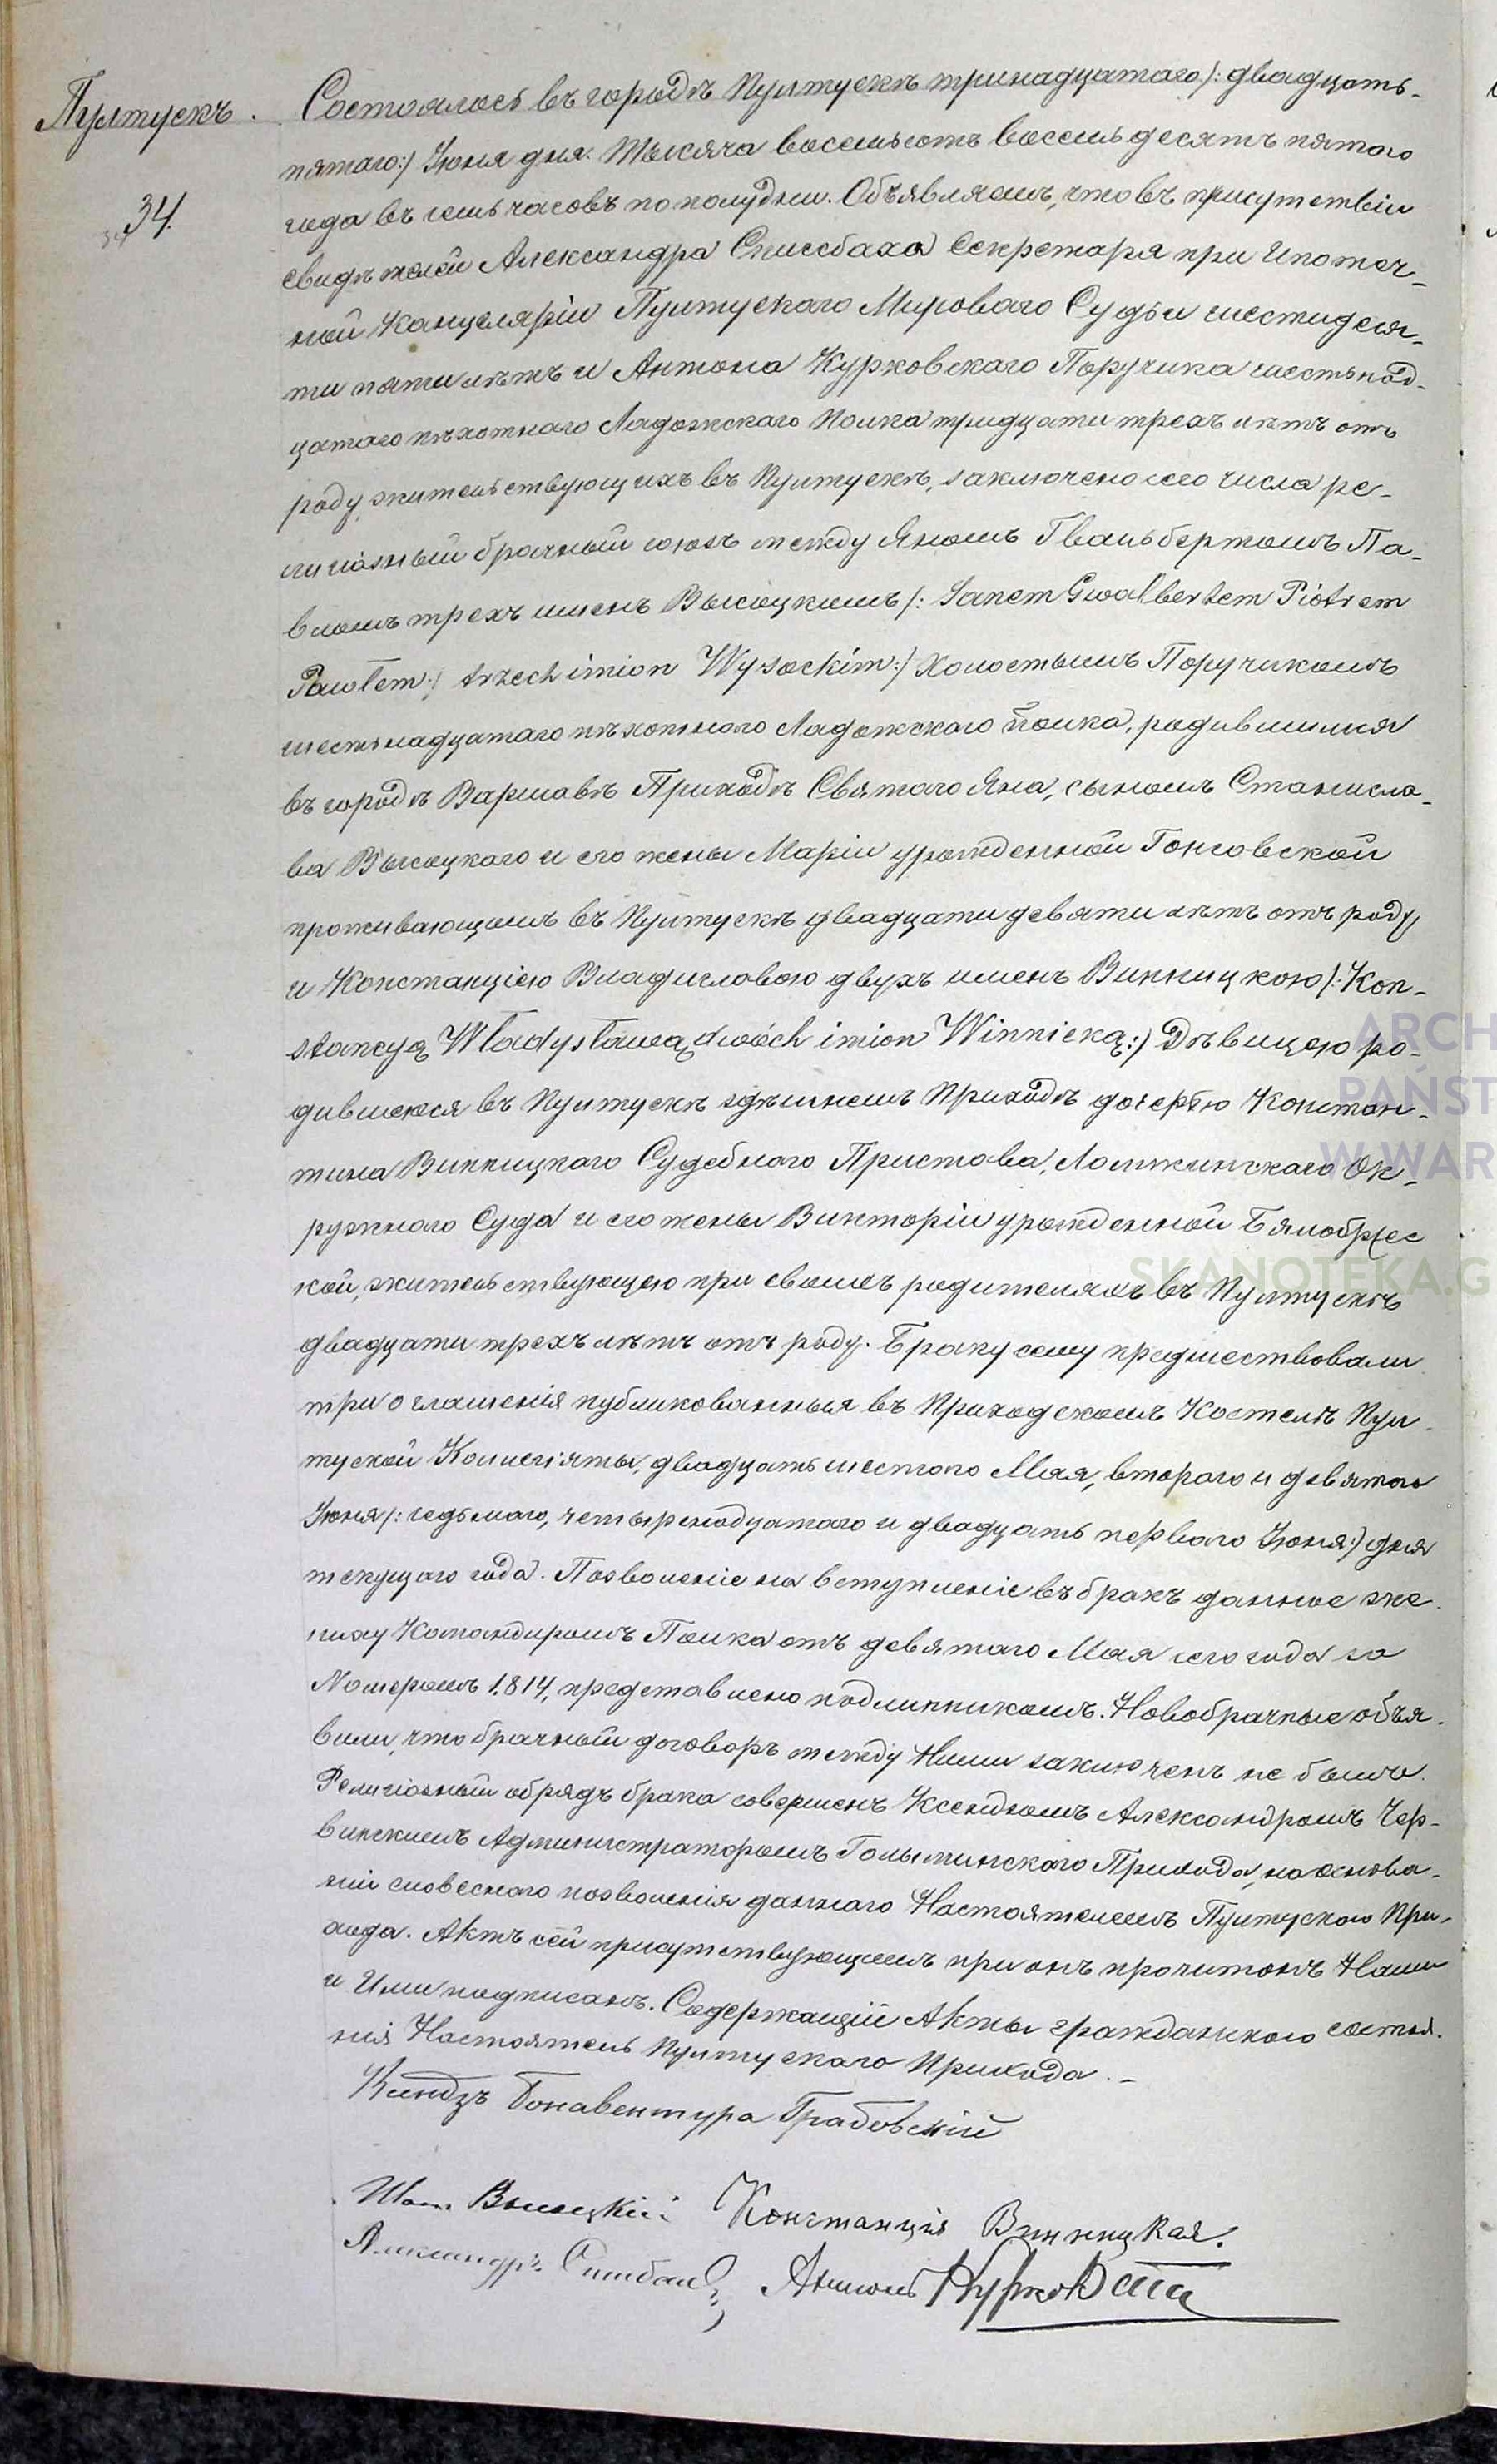 Пултускъ.
34.
Состоялось въ городѣ Пултускѣ тринадцатаго /: двадцать-
пятаго :/ Іюня дня. Тысяча восемьсотъ восемьдесятъ пятаго
года въ семь часовъ по полудни. Объявляемъ, что въ присутствіи
свидѣтелей Александра Списсбаха Секретаря при Ипотеч-
ной Канцеляріи Пултускаго Мироваго Судьи шестидеся-
ти пяти лѣтъ и Антона Курковскаго Поручика шестьнад-
цатаго пѣхотнаго Ладожскаго Полка тридцати трехъ лѣтъ отъ
роду, жительствующихъ въ Пултускѣ, заключено сего числа ре-
лигіозный брачный союзъ между Яномъ Гвальбертомъ Па-
вломъ трехъ именъ Высоцкимъ /: Janem Gwalbertem Piotrem
Pawłem :/ trzech imion Wysockim :/ Холостымъ Поручикомъ
шестьнадцатаго пѣхотнаго Ладожскаго полка, родившимся
въ городѣ Варшавѣ Приходѣ Святаго Яна, сыномъ Станисла-
ва Высоцкаго и его жены Маріи урожденной Гонсовской
проживающимъ въ Пултускѣ двадцати девяти лѣтъ отъ роду
и Констанціею Владиславою двухъ именъ Винницкою /: Kon-
stancyą Władysławą dwóch imion Winnicką :/ Дѣвицею ро-
дившеюся въ Пултускѣ здѣшнемъ Приходѣ дочерью Констан-
тина Винницкаго Судебнаго Пристава, Ломжинскаго Ок-
ружнаго Суда и его жены Викторіи урожденной Бялобржес
кой, жительствующею при своихъ родителяхъ въ Пултускѣ
двадцати трехъ лѣтъ отъ роду. Браку сему предшествовали
три оглашенія публикованныя въ Приходскомъ Костелѣ Пул-
туской Коллегіяты, двадцать шестаго Мая, втораго и девятаго
Іюня /: седьмаго, четырнадцатаго и двадцать перваго Іюня :/ дня
текущаго года. Позволеніе на вступленіе въ бракъ данное же-
ниху Командиромъ Полка отъ девятаго Мая сего года за
Номеромъ 1.814, представлено подлинникомъ. Новобрачные объя-
вили, что брачный договоръ между Ними заключенъ не былъ.
Религіозный обрядъ брака совершенъ Ксендзомъ Александромъ Чер-
винскимъ Администраторомъ Голыминскаго Прихода, на основа-
ніи словеснаго позволенія даннаго Настоятелемъ Пултускаго При-
хода. Актъ сей присутствующимъ при онъ прочитанъ Нами
и Ими подписанъ. Содержащій Акты гражданскаго состоя-
нія Настоятель Пултускаго Прихода.-
Ксендзъ Бонавентура Грабовскій
Высоцкій Констанція Винницкая.
Александръ Антонъ Курковскій
ARCH
PAŃST
W WAR
SKANOTEKA.G